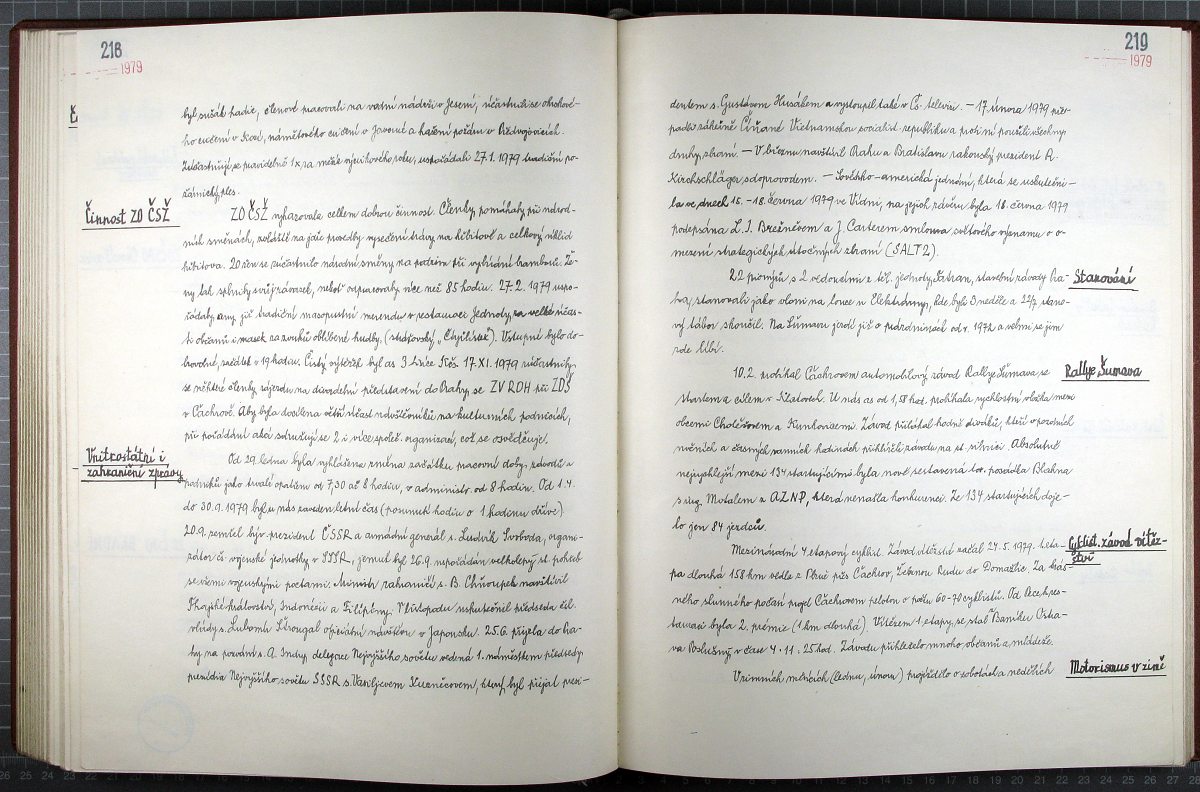 218
1979
byl sušák hadic, členové pracovali na vodní nádrži v Jesení, účastnili se okrskové-
ho cvičení v Kozí, námětového cvičení v Javorné a hašení požáru v
Zúčastňují se pravidelně 1x za měsíc výcvikového roku, uspořádali 27.1. 1979 tradiční po-
žárnický ples.
Činnost ZO ČSŽ
ZO ČSŽ vykazovala celkem dobrou činnost. Členky pomáhaly při národ-
ních směnách, zvláště na jaře provedly vysečení trávy na hřbitově a celkový úklid
hřbitova. 20 žen se zúčastnilo národní směny na podzim při vybírání brambor. Že-
ny tak splnily svůj závazek, neboť odpracovaly více než 85 hodin. 27.2. 1979 uspo-
řádaly ženy již tradiční masopustní merendu v restauraci Jednoty, za velké účas-
ti občanů i masek za zvuků oblíbené hudby. Vstupné bylo do-
brovolné, začátek v 19 hodin. Čistý výtěžek byl as 3 tisíce Kčs. 17. XI. 1979 účastnily
se některé členky zájezdu na divadelní představení do Prahy, se ZV ROH při ZDŠ
v Čachrově. Aby byla docílena větší účast návštěvníků na kulturních podnicích,
při pořádání akcí sdružují se 2 i více společ. organizací, což se osvědčuje.
Vnitrostátní i
zahraniční zprávy
Od 29. ledna byla vyhlášena změna začátku pracovní doby, závodů a
podniků jako trvalé opatření od 7,30 až 8 hodin, v administr. od 8 hodin. Od 1.4.
do 30.9. 1979 byl u nás zaveden letní čas (posunutí hodin o 1 hodinu dříve)
20.9. zemřel býv. prezident ČSSR a armádní generál s. Ludvík Svoboda, organi-
zátor čs. vojenské jednotky v SSSR, jemuž byl 26.9. uspořádán velkolepý st. pohřeb
se všemi vojenskými poctami. Ministr zahraničí s. B. Chňoupek navštívil
Thajské království, Indonésii a Filipíny. V listopadu uskutečnil předseda čsl.
vlády s. Lubomír Štrougal oficiální návštěvu v Japonsku. 25.6. přijela do Pra-
hy na pozvání s. A. Indry, delegace Nejvyššího sovětu vedená 1. náměstkem předsedy
prezidia Nejvyššího sovětu SSSR s. Vasiljevem Kuzněcovem, který byl přijat prezi-
219
1979
dentem s. Gustávem Husákem a vystoupil také v Čs. televizi. - 17. února 1979 pře-
padli zákeřně Číňané Vietnamskou socialist. republiku a proti ní použili všechny
druhy zbraní. - V březnu navštívil Prahu a Bratislavu rakouský prezident R.
Kirchschläger s doprovodem. - Sovětsko-americká jednání, která se uskuteční-
la ve dnech 15.-18. června 1979 ve Vídni, na jejich závěru byla 18. června 1979
podepsána L. I. Brežněvem a J. Carterem smlouva světového významu o o-
mezení strategických útočných zbraní (SALT 2).
Stanování
22 pionýrů s 2 vedoucími z těl. jednoty Tatran, stavební závody Pra-
ha, stanovali jako vloni na louce u Elektrárny, kde byli 3 neděle a 22/7 stano-
vý tábor skončil. Na Šumavu jezdí již o prázdninách od r. 1972 a velmi se jim
zde líbí.
Rallye Šumava
10.2. probíhal Čachrovem automobilový závod Rallye Šumava se
startem a cílem v Klatovech. U nás as od 1,58 hod. probíhala rychlostní vložka mezi
obcemi Chvalšovem a Kunkovicemi. Závod přilákal hodně diváků, kteří v pozdních
nočních a časných ranních hodinách přihlíželi závodu na st. silnici. Absolutně
nejrychlejší mezi 134 startujícími byla nově sestavená tov. posádka Blahna
s ing. Motalem z AZNP, která nenašla konkurenci. Ze 134 startujících doje-
lo jen 84 jezdců.
Cyklist. závod vítěz-
ství
Mezinárodní 4 etapový cyklist. Závod vítězství začal 24.5. 1979. 1. eta-
pa dlouhá 158 km vedla z Plzně přes Čachrov, Železnou Rudu do Domažlic. Za krás-
ného slunného počasí projel Čachrovem peloton o počtu 60-70 cyklistů. Od Pece k res-
tauraci byla 2. prémie (1 km dlouhá). Vítězem 1. etapy se stal Baníku Ostra-
va Poslušný v čase 4.11:25 hod. Závodu přihlíželo mnoho občanů a mládeže.
Motorismus v zimě
V zimních měsících (lednu, únoru) projíždělo o sobotách a nedělích